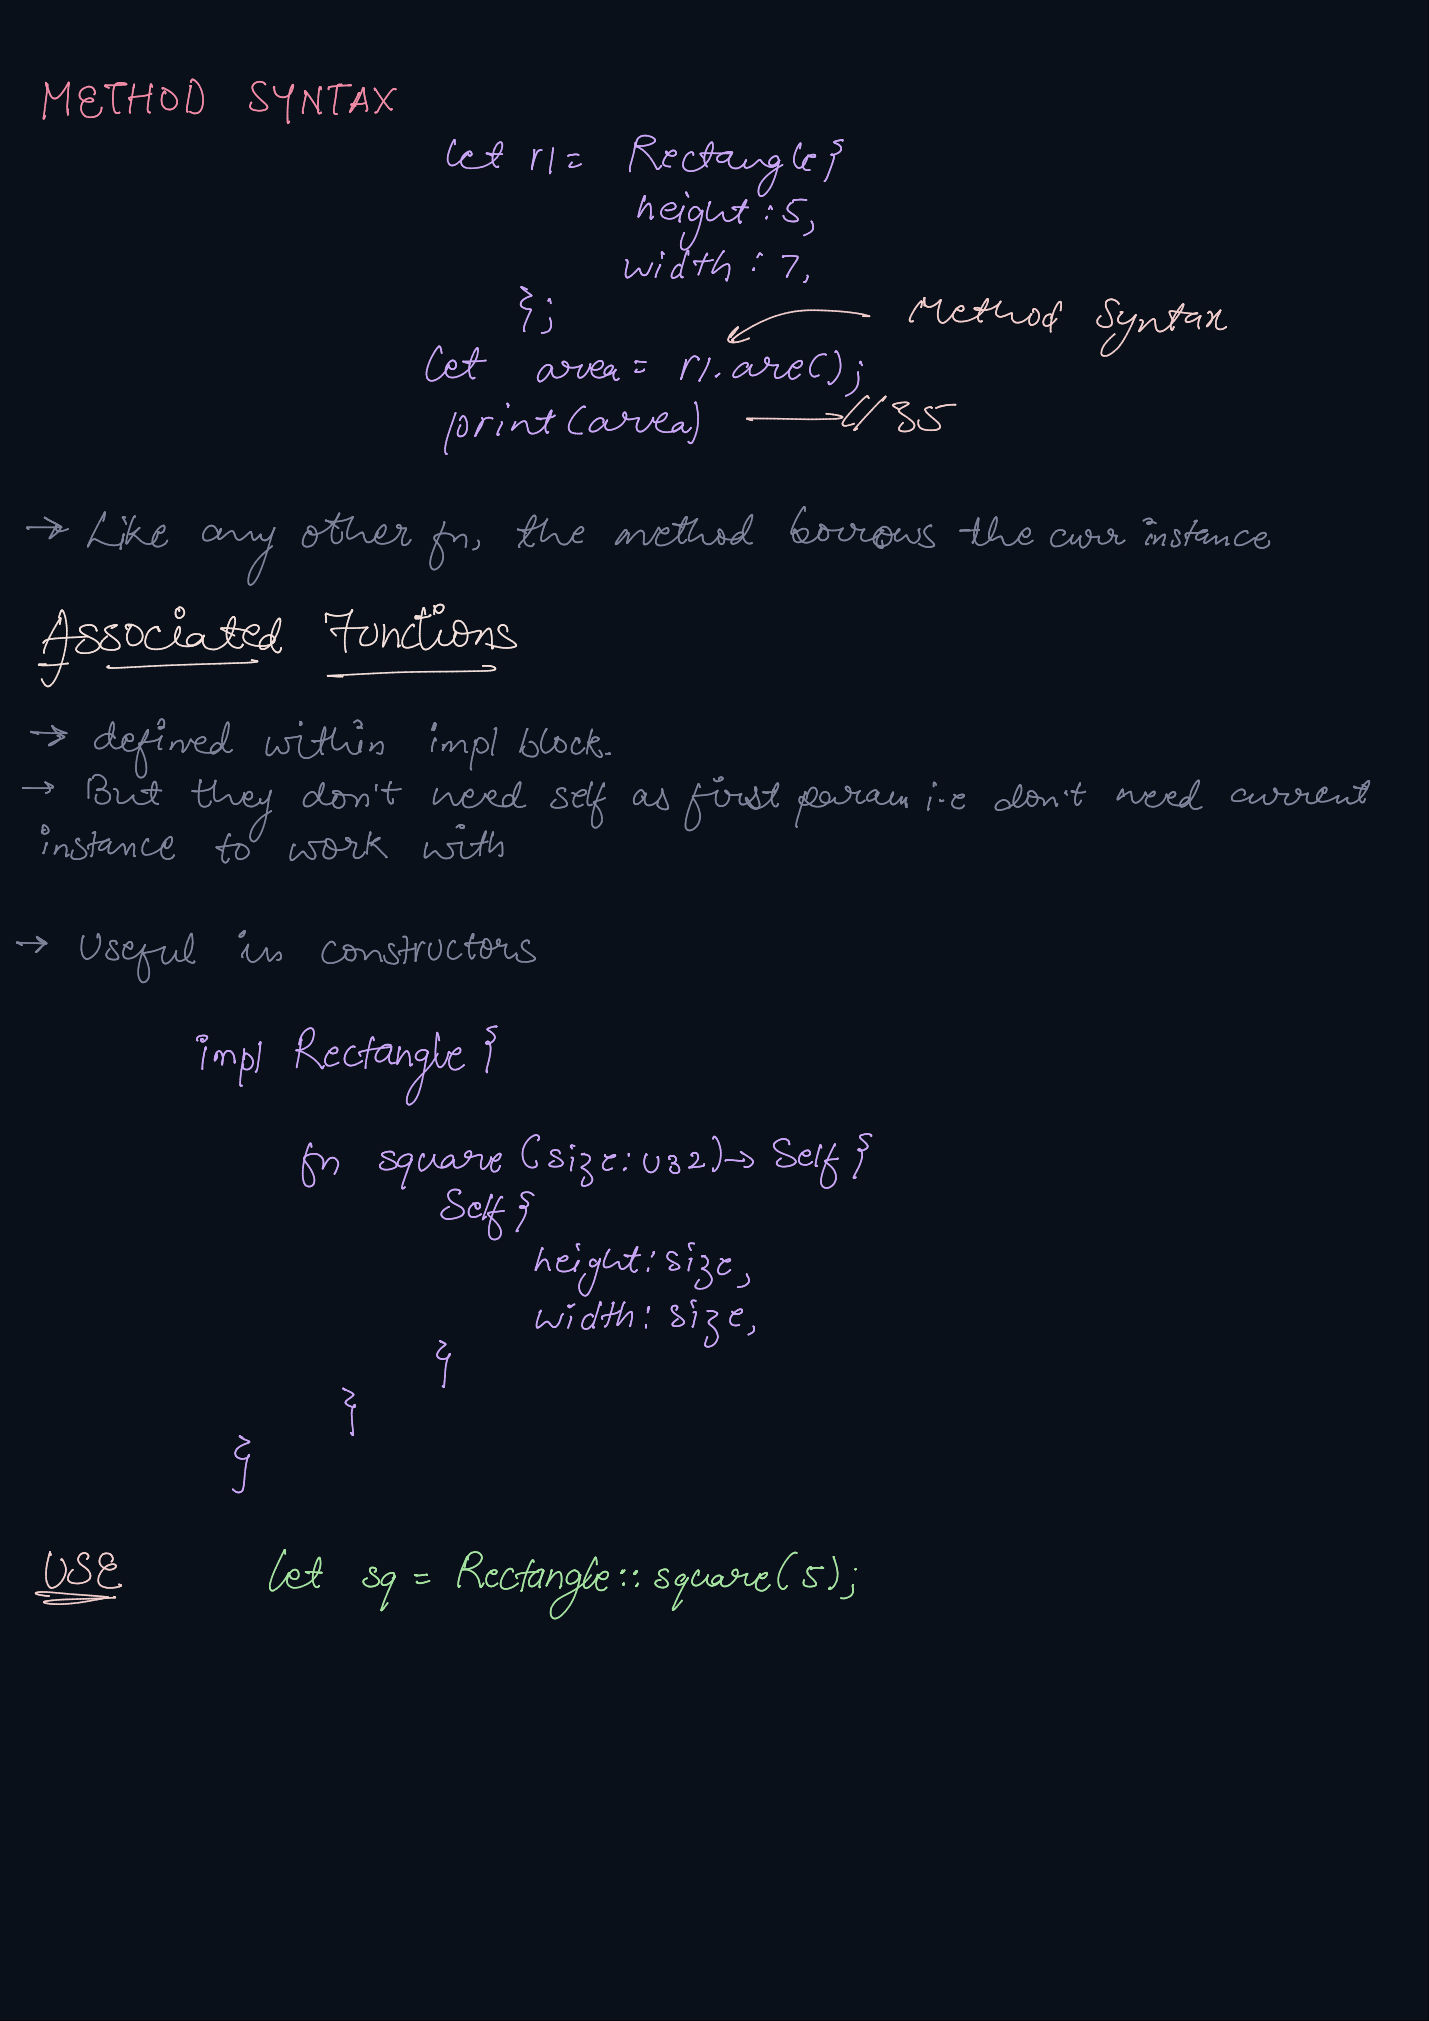 METHOD SYNTAX
let r1 = Rectangle {
height : 5,
width : 7,
};
Method Syntax
let area = r1.are();
print(area) → // 35
→ Like any other fn, the method borrows the curr instance
Associated Functions
→ defined within impl block.
→ But they don't need self as first param i.e don't need current
instance to work with
→ Useful in constructors
impl Rectangle {
fn square (size: u32) → Self {
Self {
height: size,
width: size,
}
}
}
USE let sq = Rectangle :: square(5);